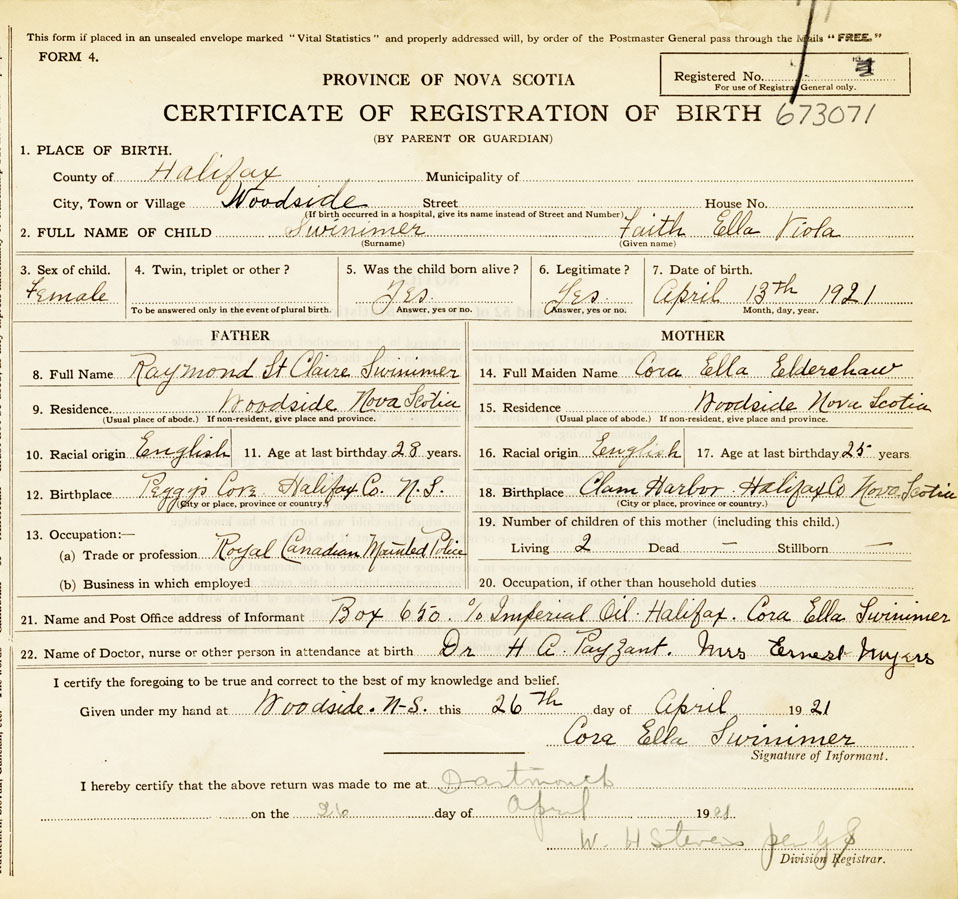 This form if placed in an unsealed envelope marked "Vital Statistics" and properly addressed will, by order of the Postmaster General pass through the Mails "FREE."
FORM 4.
Registered No.
For use of Registrar General only.
PROVINCE OF NOVA SCOTIA
CERTIFICATE OF REGISTRATION OF BIRTH 673071
(BY PARENT OR GUARDIAN)
1. PLACE OF BIRTH.
County of Halifax Municipality of
City, Town or Village Woodside Street House No.
(If birth occurred in a hospital, give its name instead of Street and Number)
2. FULL NAME OF CHILD Swinimer Faith Ella Viola
(Surname) (Given name)
3. Sex of child. 4. Twin, triplet or other? 5. Was the child born alive? 6. Legitimate? 7. Date of birth.
Female Yes. Yes. April 13th 1921
To be answered only in the event of plural birth. Answer, yes or no. Answer, yes or no. Month, day, year.
FATHER MOTHER
8. Full Name Raymond St Claire Swinimer 14. Full Maiden Name Cora Ella Eldershaw
9. Residence. Woodside Nova Scotia 15. Residence Woodside Nova Scotia
(Usual place of abode.) If non-resident, give place and province. (Usual place of abode.) If non-resident, give place and province.
10. Racial origin English 11. Age at last birthday 28 years. 16. Racial origin English 17. Age at last birthday 25 years
12. Birthplace Peggy's Cove Halifax Co. N.S. 18. Birthplace Clam Harbor Halifax Co Nova Scotia
(City or place, province or country.) (City or place, province or country.)
13. Occupation:— 19. Number of children of this mother (including this child.)
(a) Trade or profession Royal Canadian Mounted Police Living 2 Dead — Stillborn —
(b) Business in which employed 20. Occupation, if other than household duties
21. Name and Post Office address of Informant Box 650. % Imperial Oil. Halifax. Cora Ella Swinimer
22. Name of Doctor, nurse or other person in attendance at birth Dr H A. Payzant. Mrs Ernest Myers
I certify the foregoing to be true and correct to the best of my knowledge and belief.
Given under my hand at Woodside. N.S. this 26th day of April 1921
Cora Ella Swinimer
Signature of Informant.
I hereby certify that the above return was made to me at Dartmouth
on the 26 day of April 1921.
W. H Stevens per
Division Registrar.